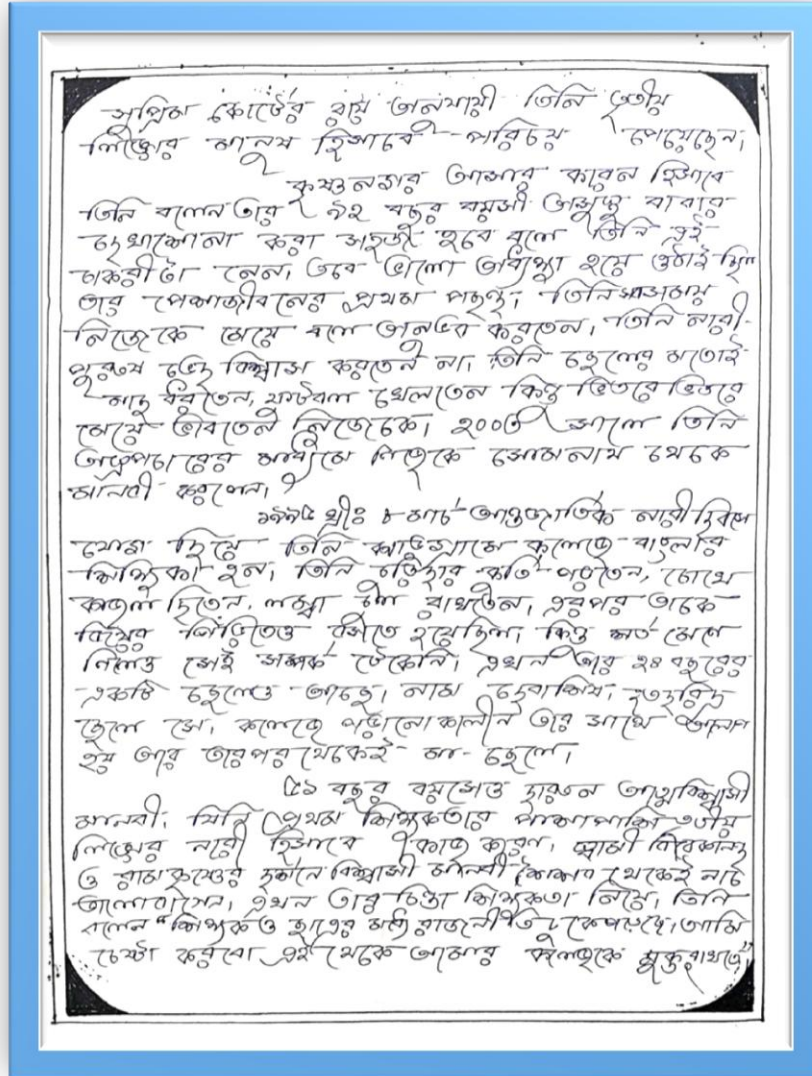 সুপ্রিম কোর্টের রায় অনুযায়ী তিনি তৃতীয়
লিঙ্গের মানুষ হিসাবে পরিচয় পেয়েছেন।
কৃষ্ণনগর আসার কারন হিসাবে
তিনি বলেন তার ৯২ বছর বয়সী অসুস্থ বাবার
দেখাশোনা করা সহজ হবে বলে তিনি এই
চাকরীটা নেন। তবে ভালো অধ্যক্ষা হয়ে ওঠাই ছিল
তার পেশাজীবনের প্রথম পছন্দ।
নিজেকে মেয়ে বলে অনুভব করতেন। তিনি নারী-
পুরুষ ভেদ বিশ্বাস করতেন না। তিনি ছেলের মতোই
মাছ ধরতেন, ফুটবল খেলতেন কিন্তু ভিতরে ভিতরে
মেয়ে ভাবতেন নিজেকে। ২০০৩ সালে তিনি
অস্ত্রপচারের মাধ্যমে নিজেকে সোমনাথ থেকে
মানবী করলেন।
১৯৯৫ খ্রীঃ ৮ মার্চ আন্তজার্তিক নারী দিবসে
যোগ দিয়ে তিনি ঝাড়গ্রামে কলেজে বাংলার
শিক্ষিকা হন। তিনি পরতেন, চোখে
কাজল দিতেন, লম্বা চুল রাখতেন। এরপর তাকে
বিয়ের পিঁড়িতেও বসতে হয়েছিল। কিন্তু শর্ত মেনে
নিলেও সেই সম্পর্ক টেকেনি। এখন তার ২৪ বছরের
একটি ছেলেও আছে। নাম দেবাশিষ। হতদরিদ্র
ছেলে সে। কলেজে পড়ানোকালীন তার সাথে আলাপ
হয় আর তারপর থেকেই মা-ছেলে।
৫১ বছর বয়সেও দারুন আত্মবিশ্বাসী
মানবী। যিনি প্রথম শিক্ষকতার পাশাপাশি তৃতীয়
লিঙ্গের নারী হিসাবে কাজ করেন। স্বামী বিবেকানন্দ
ও রামকৃষ্ণের দর্শনে বিশ্বাসী মানবী শৈশব থেকেই নাচ
ভালোবাসেন। এখন তার চিন্তা শিক্ষকতা নিয়ে। তিনি
বলেন "শিক্ষক ও ছাত্রের মধ্যে রাজনীতি ঢুকে পড়েছে। আমি
চেষ্টা করবো এই থেকে আমার কলেজকে মুক্ত রাখতে"